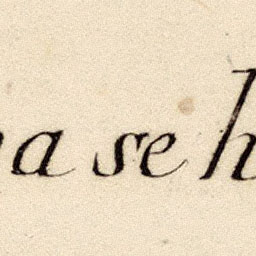 a se h